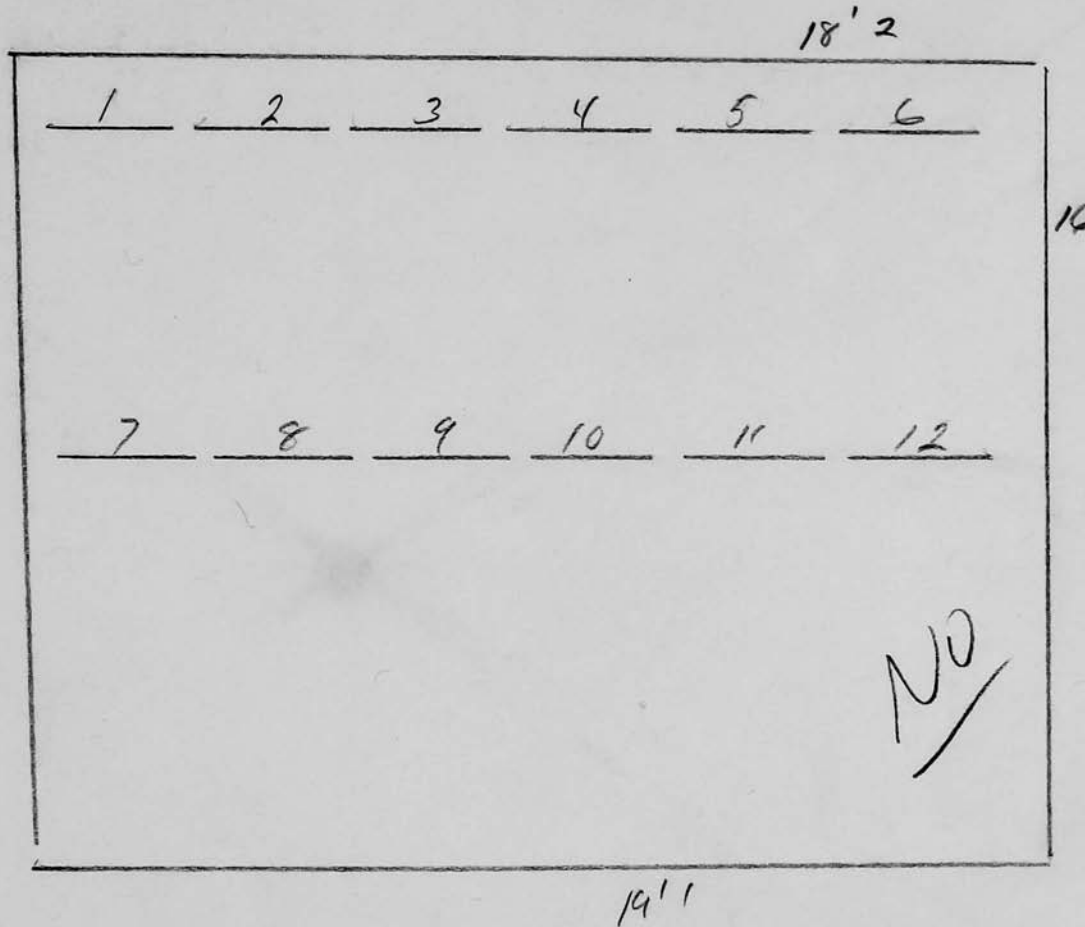 18' 2
1 2 3 4 5 6
7 8 9 10 11 12
NO
19' 1